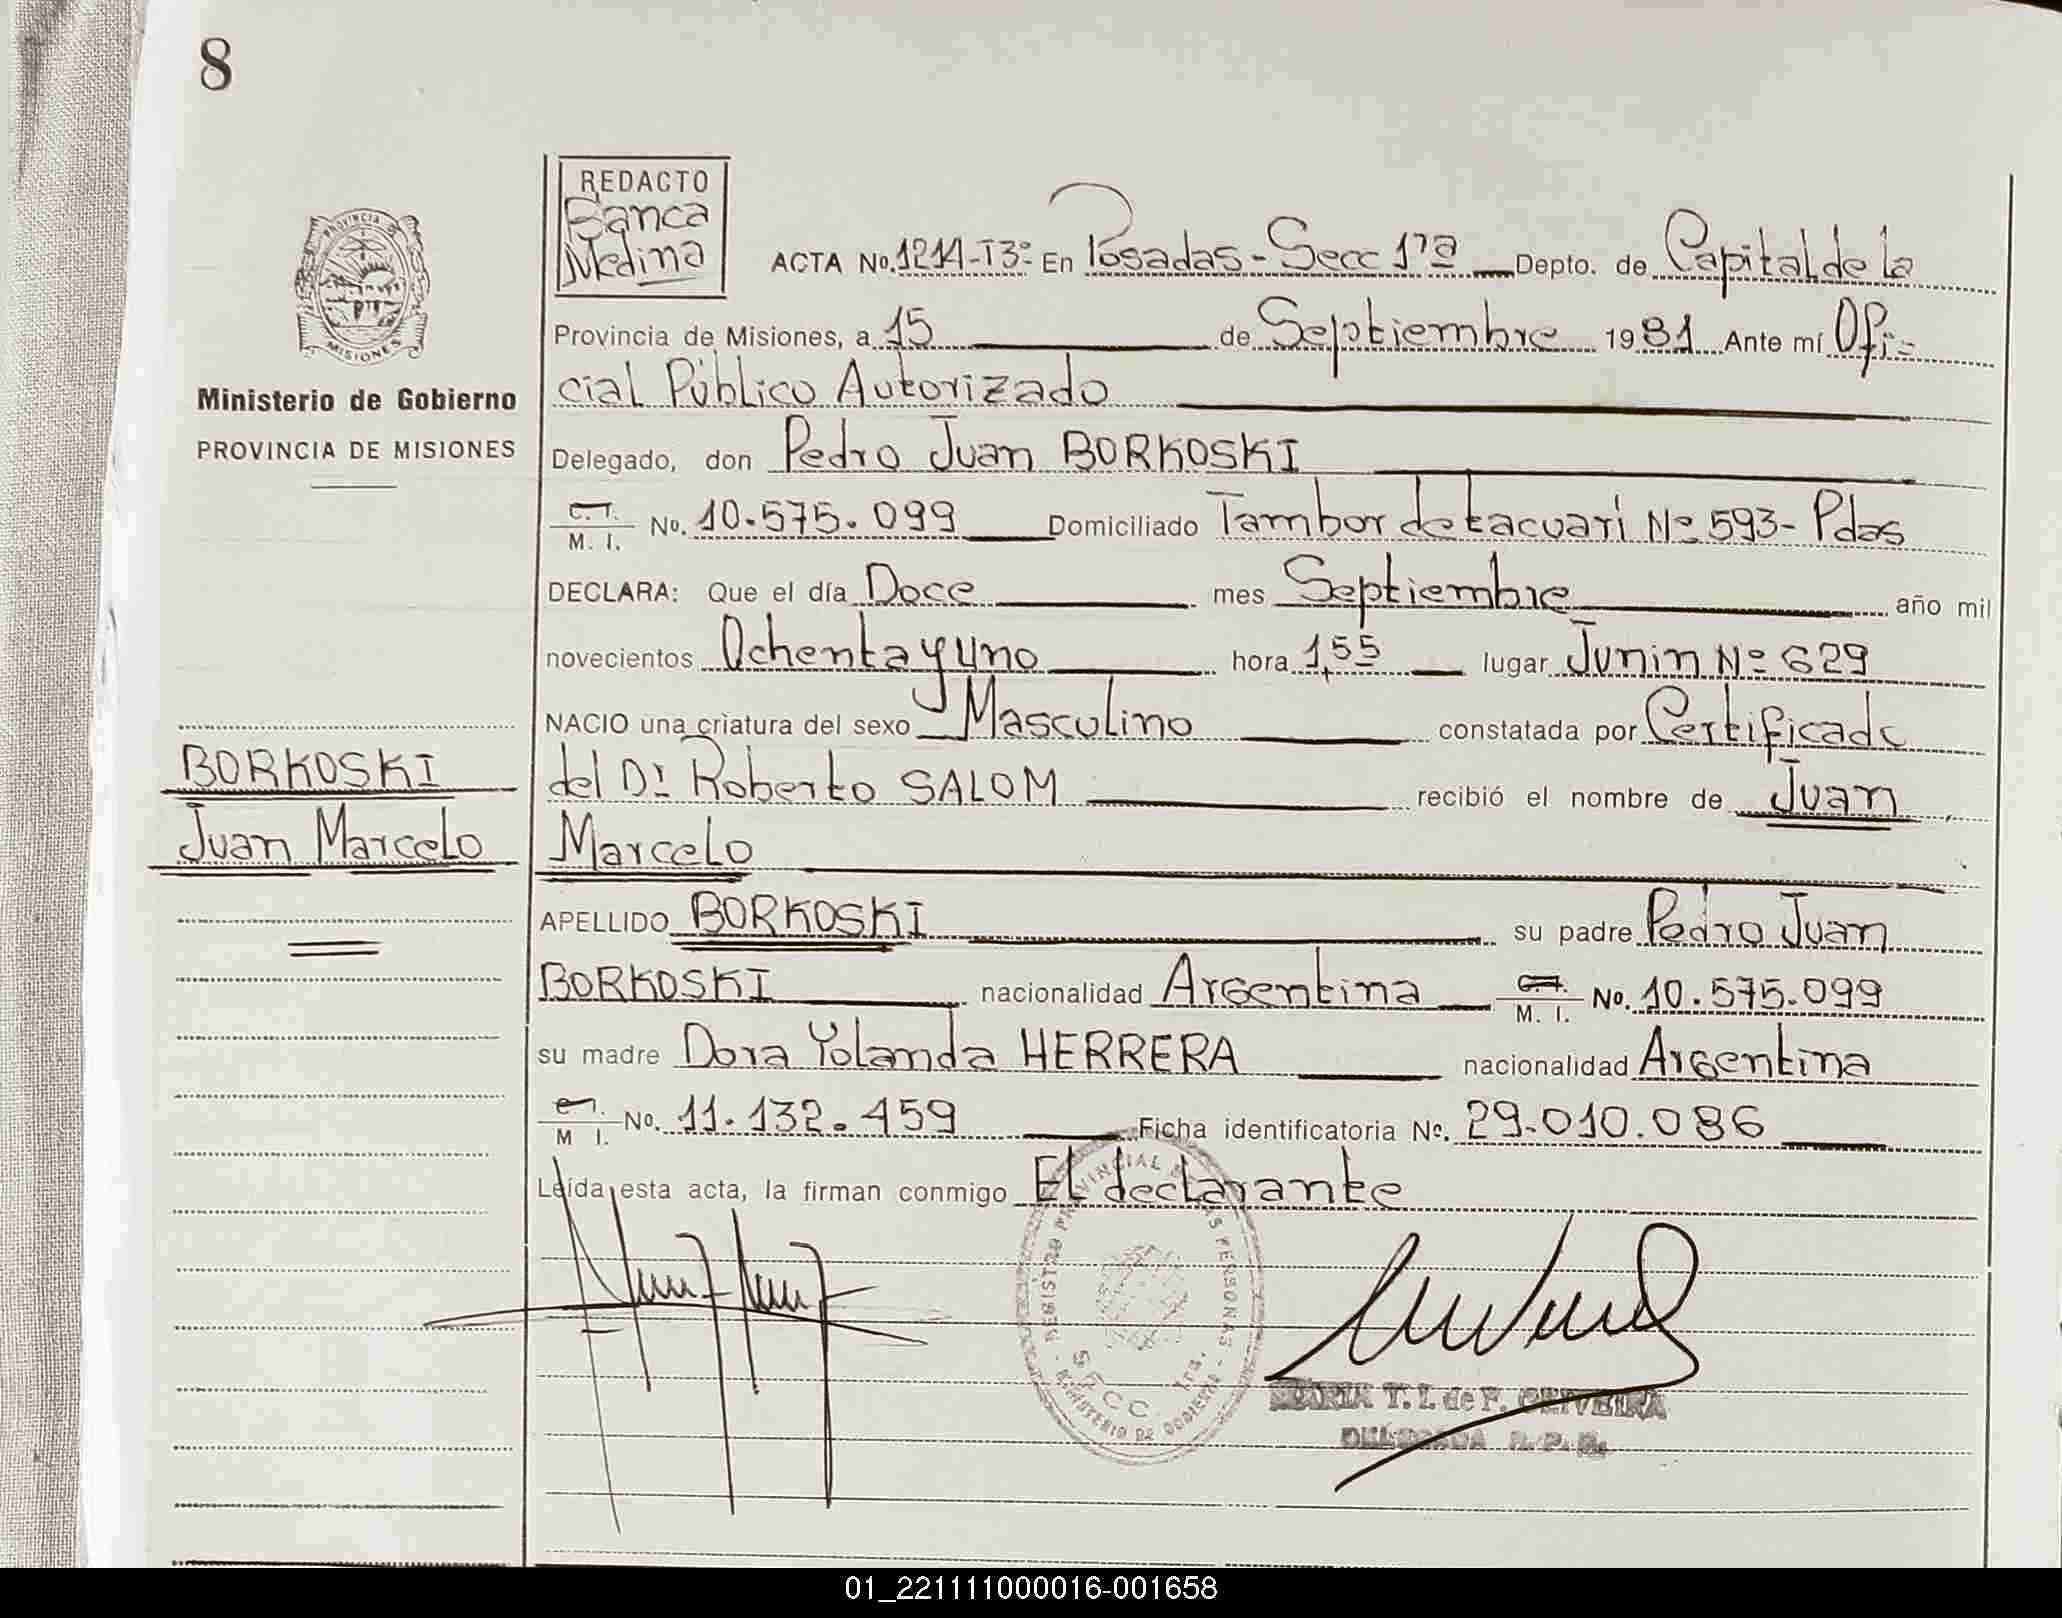 8
REDACTO
Banca
Medina
PROVINCIA DE
MISIONES
Ministerio de Gobierno
PROVINCIA DE MISIONES
ACTA No. 1214-T3º En Posadas - Secc 1ra Depto. de Capital de la
Provincia de Misiones, a 15 de Septiembre 1981 Ante mí Ofi-
cial Público Autorizado
Delegado, don Pedro Juan BORKOSKI
C. I.
M. I. No. 10.575.099 Domiciliado Tambor de tacuari Nº 593 - Pdas
DECLARA: Que el día Doce mes Septiembre año mil
novecientos Ochenta y uno hora 1,55 lugar Junin Nº 629
NACIO una criatura del sexo Masculino constatada por Certificado
del Dr Roberto SALOM recibió el nombre de Juan
Marcelo
BORKOSKI
Juan Marcelo
APELLIDO BORKOSKI su padre Pedro Juan
BORKOSKI nacionalidad Argentina C. I. M. I. No. 10.575.099
su madre Dora Yolanda HERRERA nacionalidad Argentina
M I. No. 11.132.459 Ficha identificatoria No. 29.010.086
Leída esta acta, la firman conmigo El declarante
REGISTRO PROVINCIAL DE LAS PERSONAS
SECC 1ra.
MINISTERIO DE GOBIERNO
MARIA T. I. de F. OLIVEIRA
DELEGADA R. P. P.
01_221111000016-001658